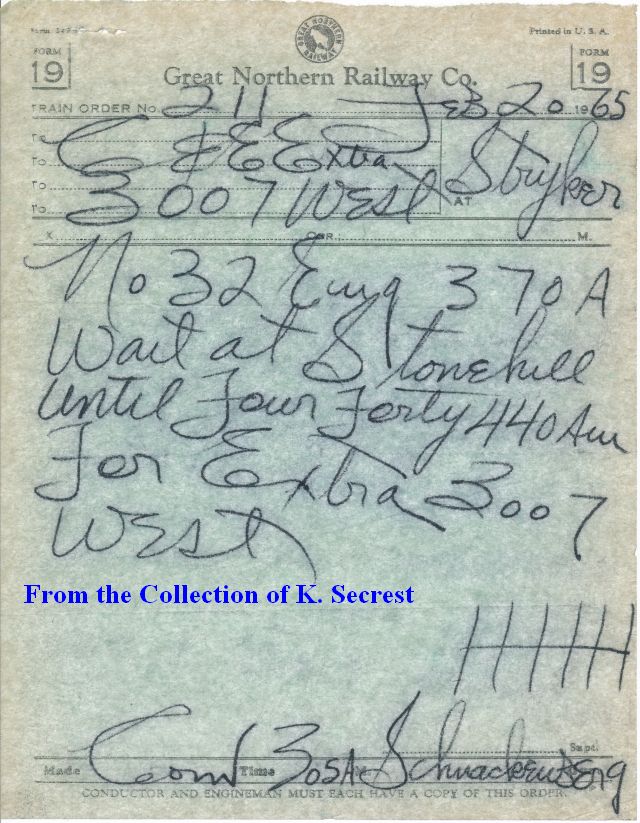 GREAT NORTHERN RAILWAY
Printed in U. S. A.
FORM 19
FORM 19
Great Northern Railway Co.
TRAIN ORDER No. 211 Feb 20 1965
To C & E Extra
To
To 3007 West AT Stryker
To
X OPR.; M.
No 32 Eng 370A
Wait at Stonehill
until Four Forty 440 Am
For Extra 3007
West
From the Collection of K. Secrest
HHH
Supt.
Made Com Time 305A Schnackenberg
CONDUCTOR AND ENGINEMAN MUST EACH HAVE A COPY OF THIS ORDER.